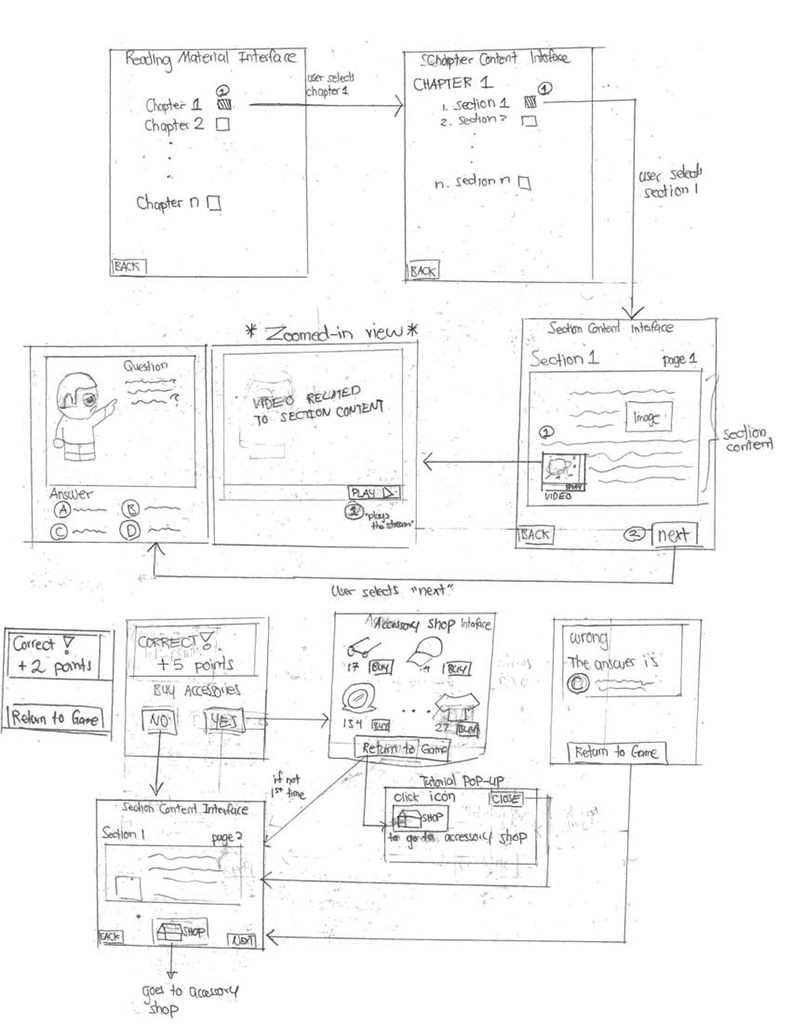 Reading Material Interface
①
Chapter 1
Chapter 2
Chapter n
BACK
user selects
chapter 1
Chapter Content Interface
CHAPTER 1
①
1. section 1
2. section 2
n. section n
BACK
user selects
section 1
* Zoomed-in view *
Question
?
?
Answer
A
B
C
D
VIDEO RELATED
TO SECTION CONTENT
PLAY
"plays
the stream"
Section Content Interface
Section 1 page 1
Image
VIDEO
section
content
BACK
②
next
User selects "next"
Correct!
+2 points
Return to Game
CORRECT!
+5 points
BUY ACCESSORIES
NO
YES
Accessory Shop Interface
17 BUY
BUY
134 BUY
27 BUY
Return to Game
wrong
The answer is
C
Return to Game
if not
1st time
Tutorial POP-UP
click icon CLOSE
SHOP
to go to accessory shop
Section Content Interface
Section 1 page 2
BACK
SHOP
NEXT
goes to accessory
shop